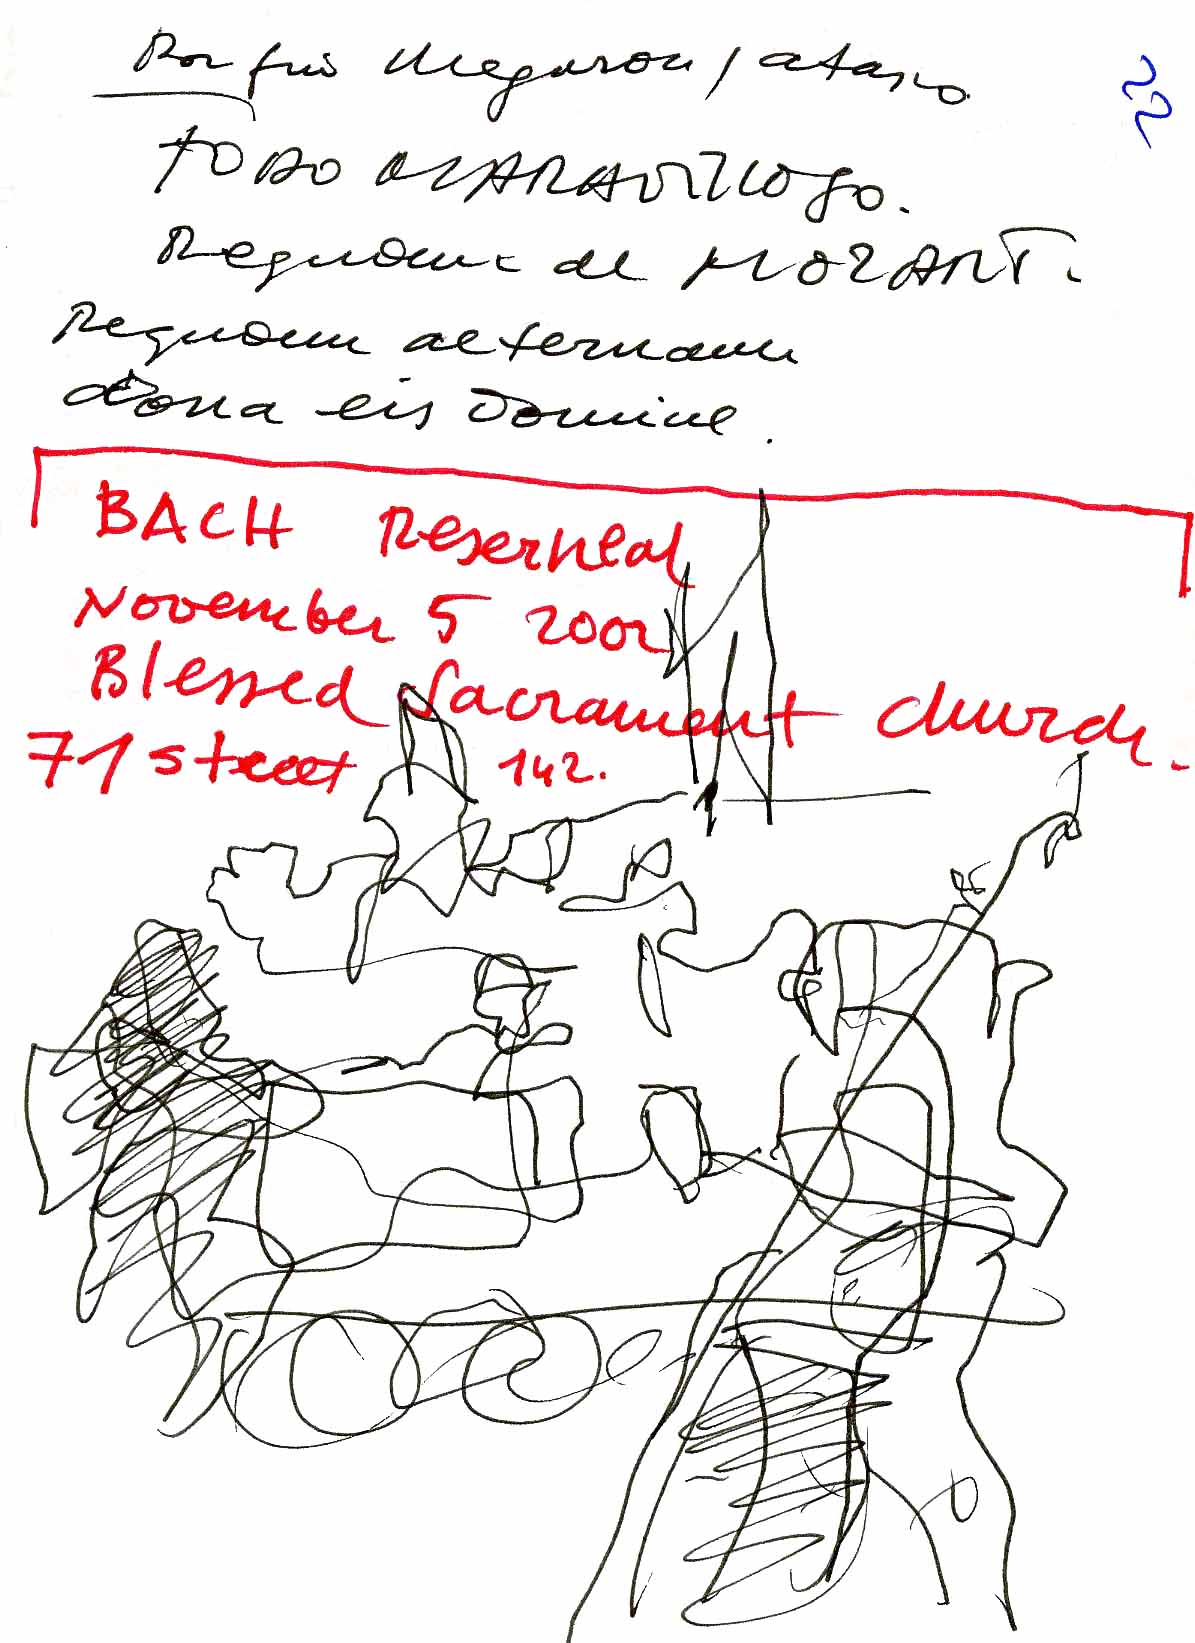 Por fin
22
TODO MARAVILLOSO.
Requiem de MOZART.
Requiem aeternam
dona eis Domine.
BACH Reserheal
November 5 2002
Blessed Sacrament church.
71 street 142.